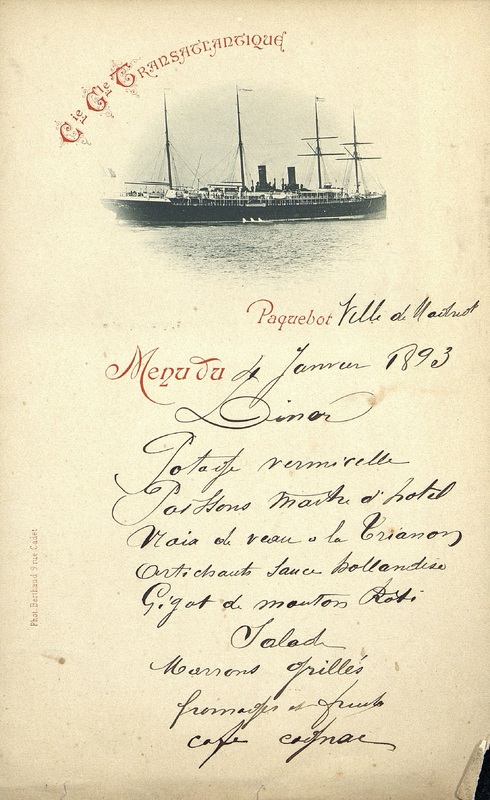 Cie Gle Transatlantique
Paquebot Ville de Madrid
Menu du 4 Janvier 1893
Diner
Potage vermicelle
Poissons maitre d'hotel
Noix de veau a la Trianon
Artichauts Sauce hollandise
Gigot de mouton Roti
Salade
Marrons grillés
fromages et fruits
cafe cognac
Phot. Berthaud 9 rue Cadet